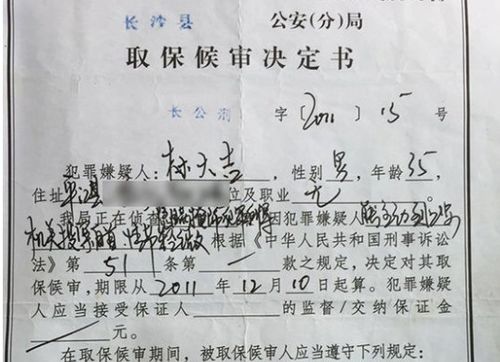 长沙县 公安(分)局
取保候审决定书
长公刑 字[2011]15号
犯罪嫌疑人:林大吉,性别男,年龄35,
住址 县 位及职业无。
我局正在侦查 因犯罪嫌疑人能主动到公安
机关投案自首 情节轻微 根据《中华人民共和国刑事诉讼
法》第51条第一款之规定,决定对其取
保候审,期限从2011年12月10日起算。犯罪嫌疑
人应当接受保证人 的监督/交纳保证金
元。
在取保候审期间,被取保候审人应当遵守下列规定: